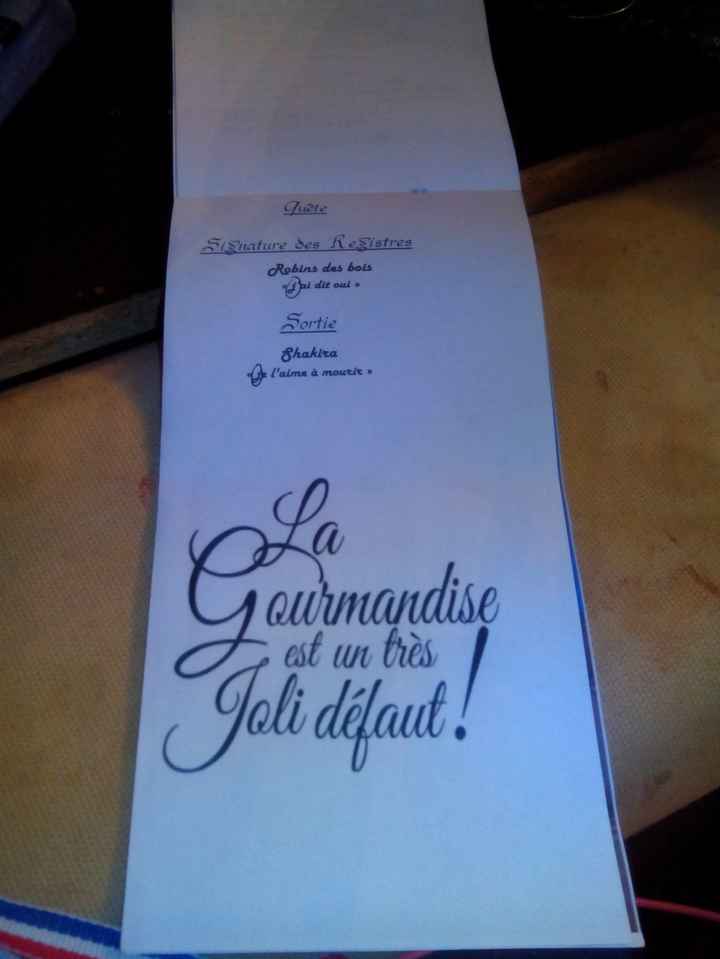 Quête
Signature des Registres
Robins des bois
« j'ai dit oui »
Sortie
Shakira
« Je l'aime à mourir »
La
Gourmandise
est un très
Joli défaut !